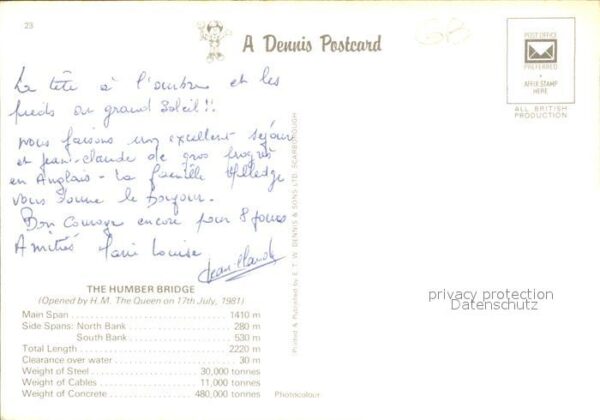 23
A Dennis Postcard
GB
POST OFFICE
PREFERRED
AFFIX STAMP
HERE
ALL BRITISH
PRODUCTION
La tête à l'ombre et les
pieds au grand Soleil !!
nous faisons un excellent séjour
et Jean-Claude de gros progrès
en Anglais - La famille
vous donne le bonjour.
Bon Courage encore pour 8 jours
Amitiés Marie Louise
Jean-Claude
Printed & Published by E. T. W. DENNIS & SONS LTD. SCARBOROUGH
THE HUMBER BRIDGE
(Opened by H.M. The Queen on 17th July, 1981)
Main Span 1410 m
Side Spans: North Bank 280 m
South Bank 530 m
Total Length 2220 m
Clearance over water 30 m
Weight of Steel 30,000 tonnes
Weight of Cables 11,000 tonnes
Weight of Concrete 480,000 tonnes
Photocolour
privacy protection
Datenschutz